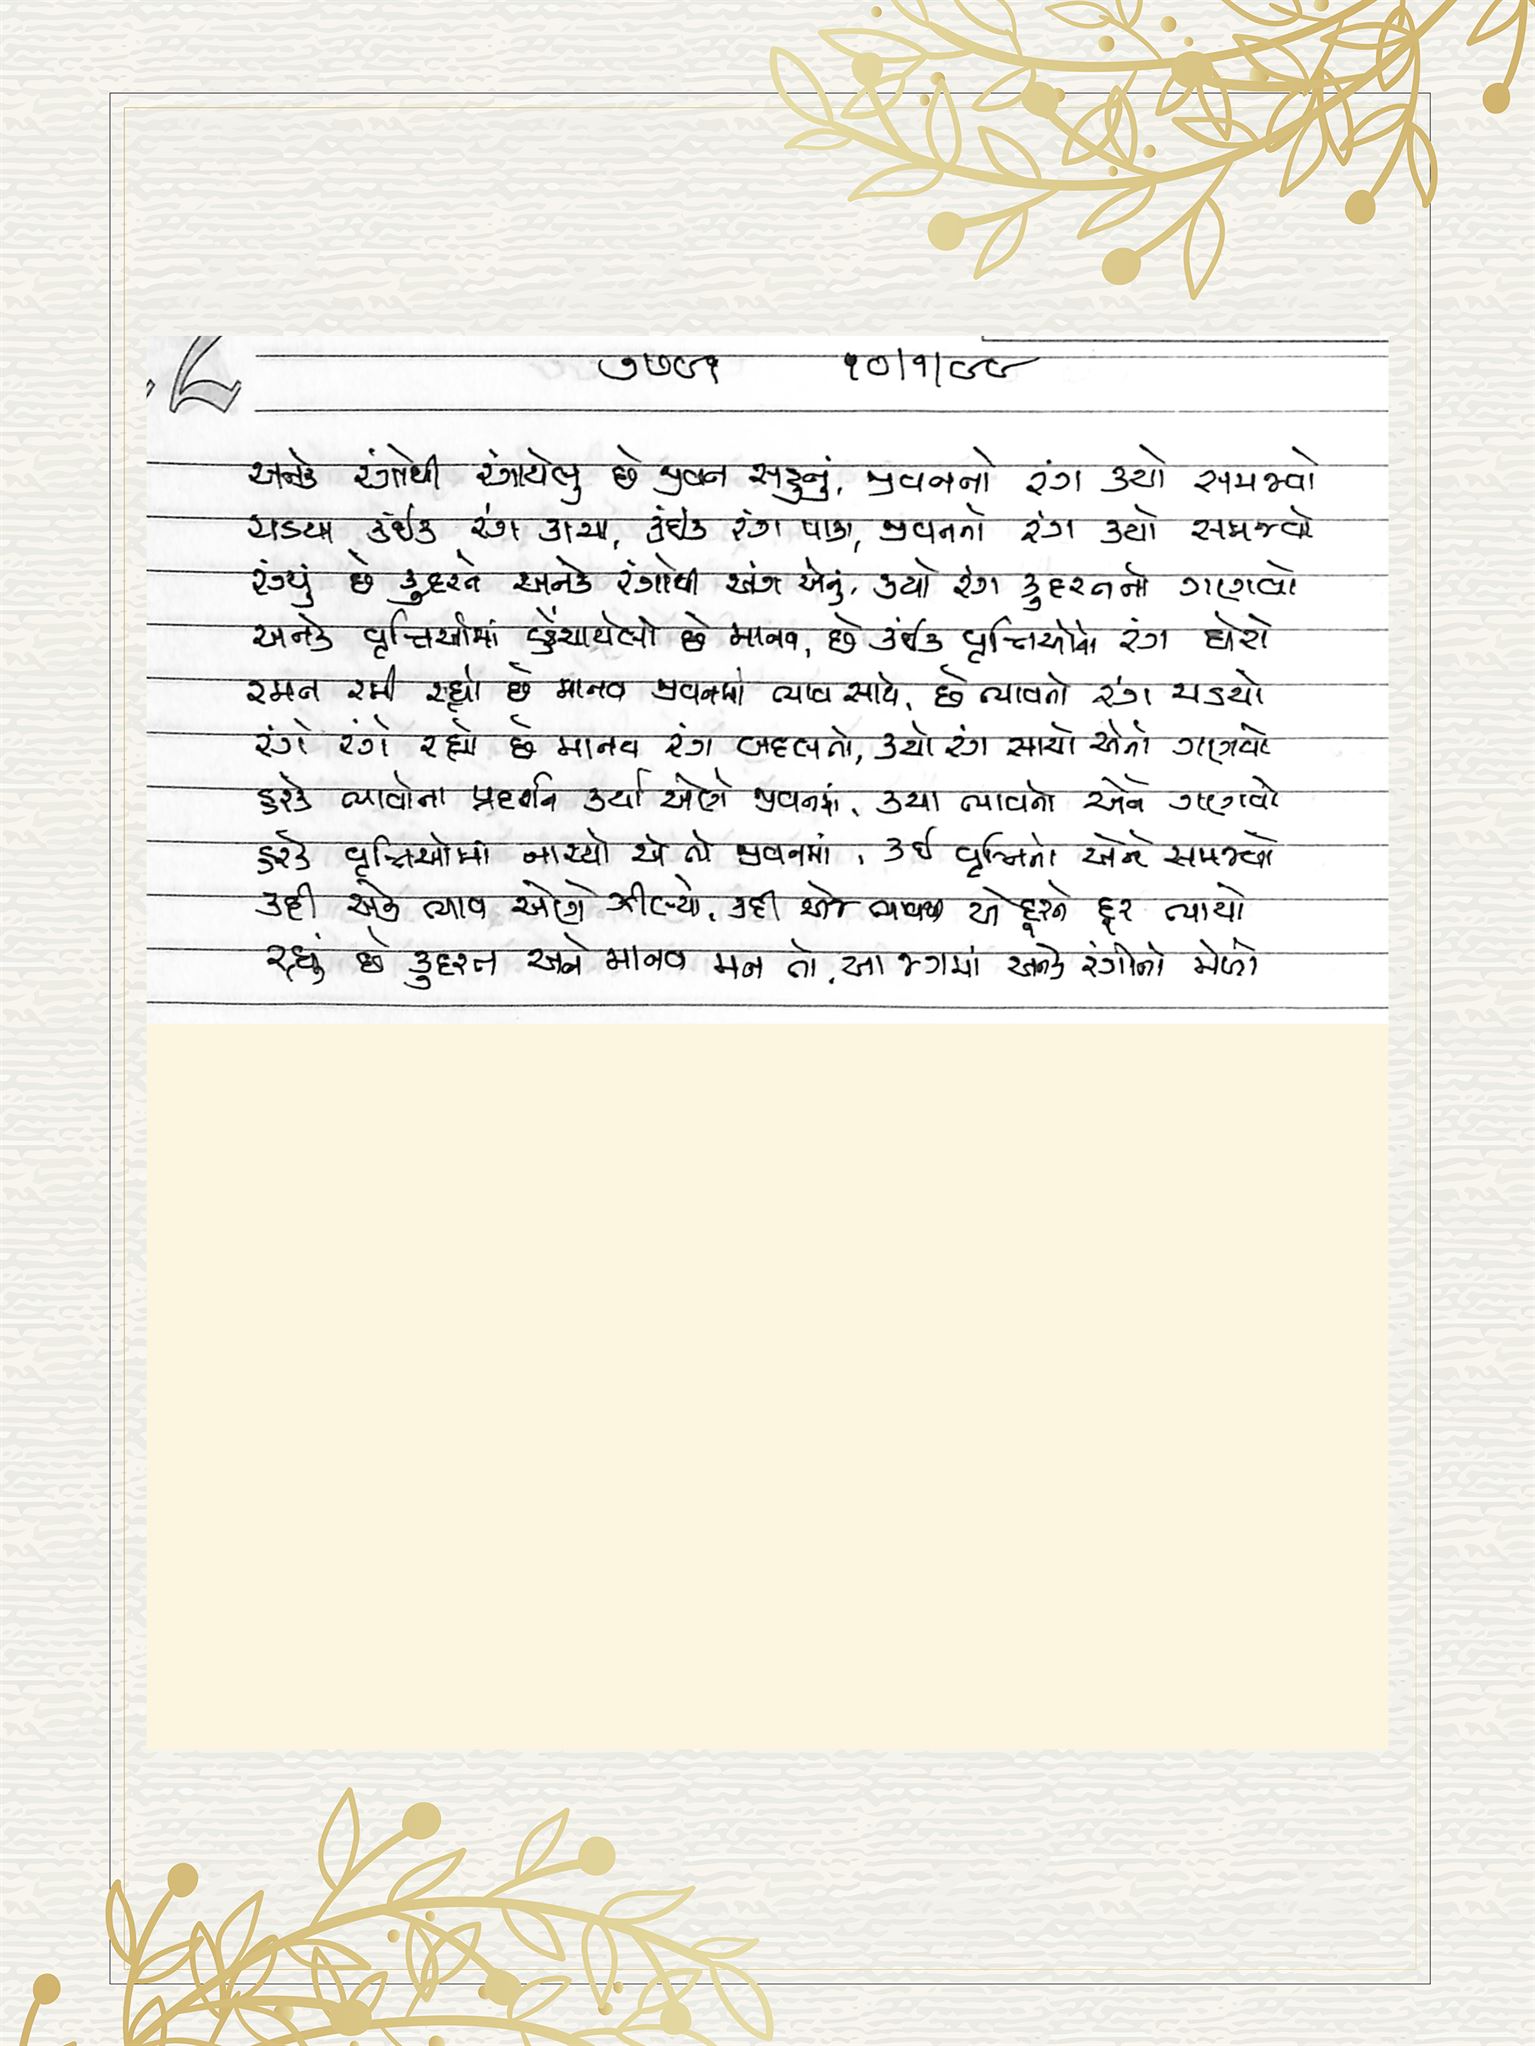 ૭૭૯૧ ૧૦/૧/૯૯
અનેક રંગોથી રંગાયેલુ છે જીવન સહુનું, જીવનનો રંગ કયો સમજવો
ચડયા કંઈક રંગ કાચા, કંઈક રંગ પાકા, જીવનનો રંગ કયો સમજવો
રંગ્યું છે કુદરને અનેક રંગોથી અંગ એનું, કયો રંગ કુદરતનો ગણવો
અનેક વૃત્તિઓમાં વ્હેંચાયેલો છે માનવ, છે કંઈક વૃત્તિઓનો રંગ ઘેરો
રમત રમી રહ્યો છે માનવ જીવનમાં ભાવ સાથે, છે ભાવનો રંગ ચડયો
રંગે રંગે રહ્યો છે માનવ રંગ બદલતો, કયો રંગ સાચો એનો ગણવો
હરેક ભાવોના પ્રદર્શન કર્યા એણે જીવનમાં, કયા ભાવનો એને ગણવો
હરેક વૃત્તિઓમાં નાચ્યો એ તો જીવનમાં, કઈ વૃત્તિનો એને સમજવો
કદી એક ભાવ એણે ઝીલ્યો, કદી એજ ભાવથી એ દૂરને દૂર ભાગ્યો
રહ્યું છે કુદરત અને માનવ મન તો, આ જગમાં અનેક રંગોનો મેળો